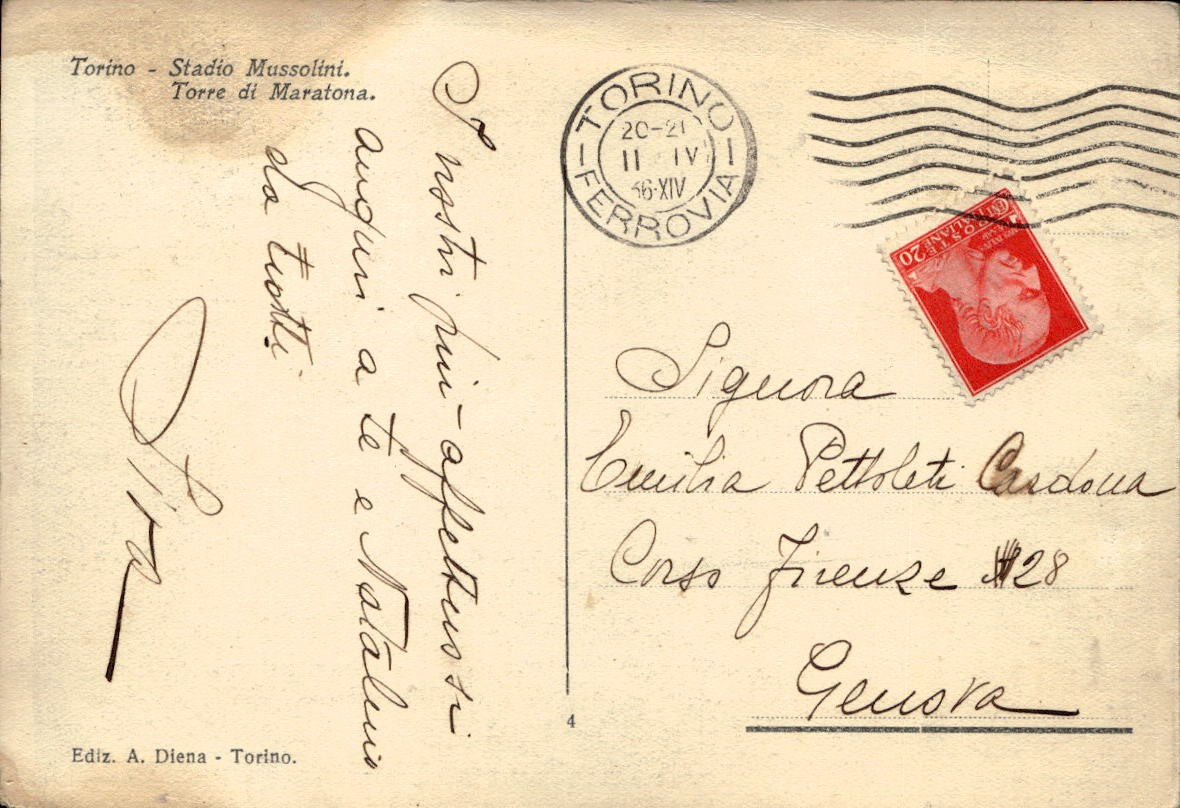 Torino - Stadio Mussolini.
Torre di Maratona.
I nostri più affettuosi
auguri a te e Natalino
da tutti.
TORINO
20-21
11 IV
36·XIV
FERROVIA
POSTE
ITALIANE
CENT. 20
Signora
Emilia Pettoleti Cardona
Corso Firenze 28
Genova
4
Ediz. A. Diena - Torino.